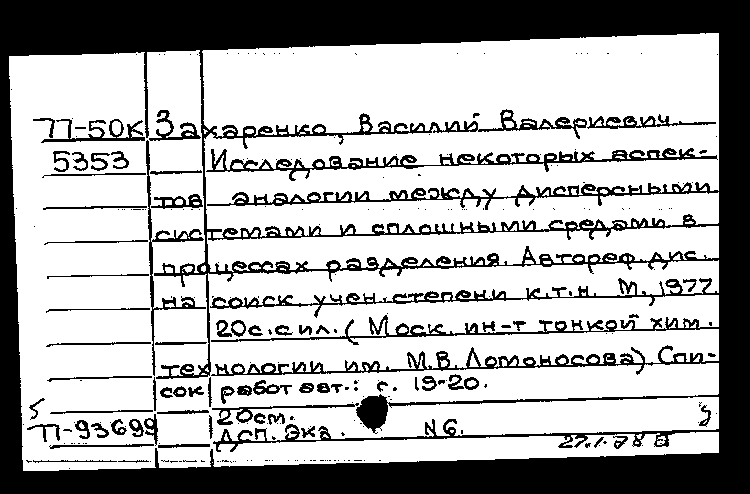 77-50к Захаренко, Василий Валериевич.
5353 Исследование некоторых аспек-
тов аналогии между дисперсными
системами и сплошными средами в
процессах разделения. Автореф. дис.
на соиск. учен. степени к.т.н. М., 1977.
20с. с ил. (Моск. ин-т тонкой хим.
технологии им. М.В. Ломоносова) Спи-
сок работ авт.: с. 19-20.
5 20см.
77-93699 ДСП. Экз. N6.
27.1.78